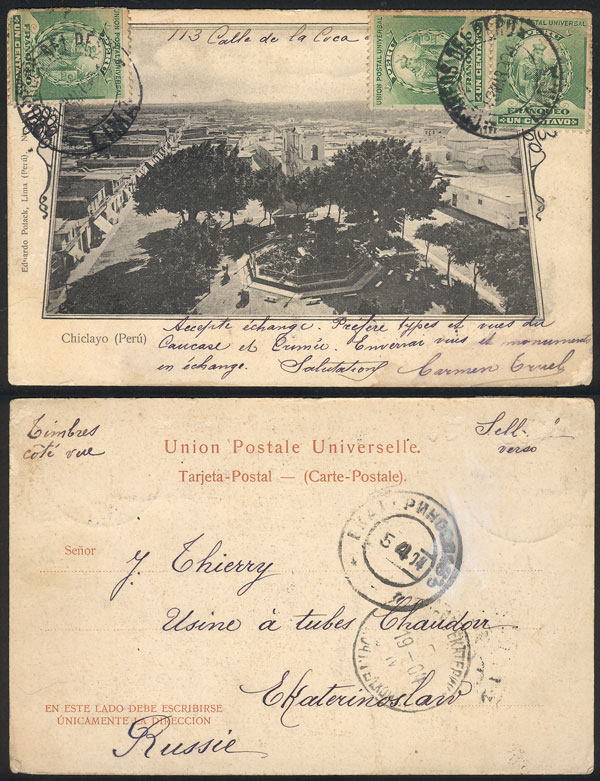 113 Calle de la Coca
UNION POSTAL UNIVERSAL
FRANQUEO
UN CENTAVO
LIMA
UNION POSTAL UNIVERSAL
FRANQUEO
UN CENTAVO
UNION POSTAL UNIVERSAL
FRANQUEO
UN CENTAVO
Eduardo Polack, Lima (Perú), No
Chiclayo (Perú)
Accepte échange. Préfère types et vues du
Caucase et Crimée. Enverrai vues et monuments
en échange. Salutations Carmen
Timbres
côté vue
Sell.
verso
Union Postale Universelle.
Tarjeta-Postal — (Carte-Postale).
Señor
J. Thierry
Usine à tubes Chaudoir
Ekaterinoslaw
EN ESTE LADO DEBE ESCRIBIRSE
ÚNICAMENTE LA DIRECCION
Russie